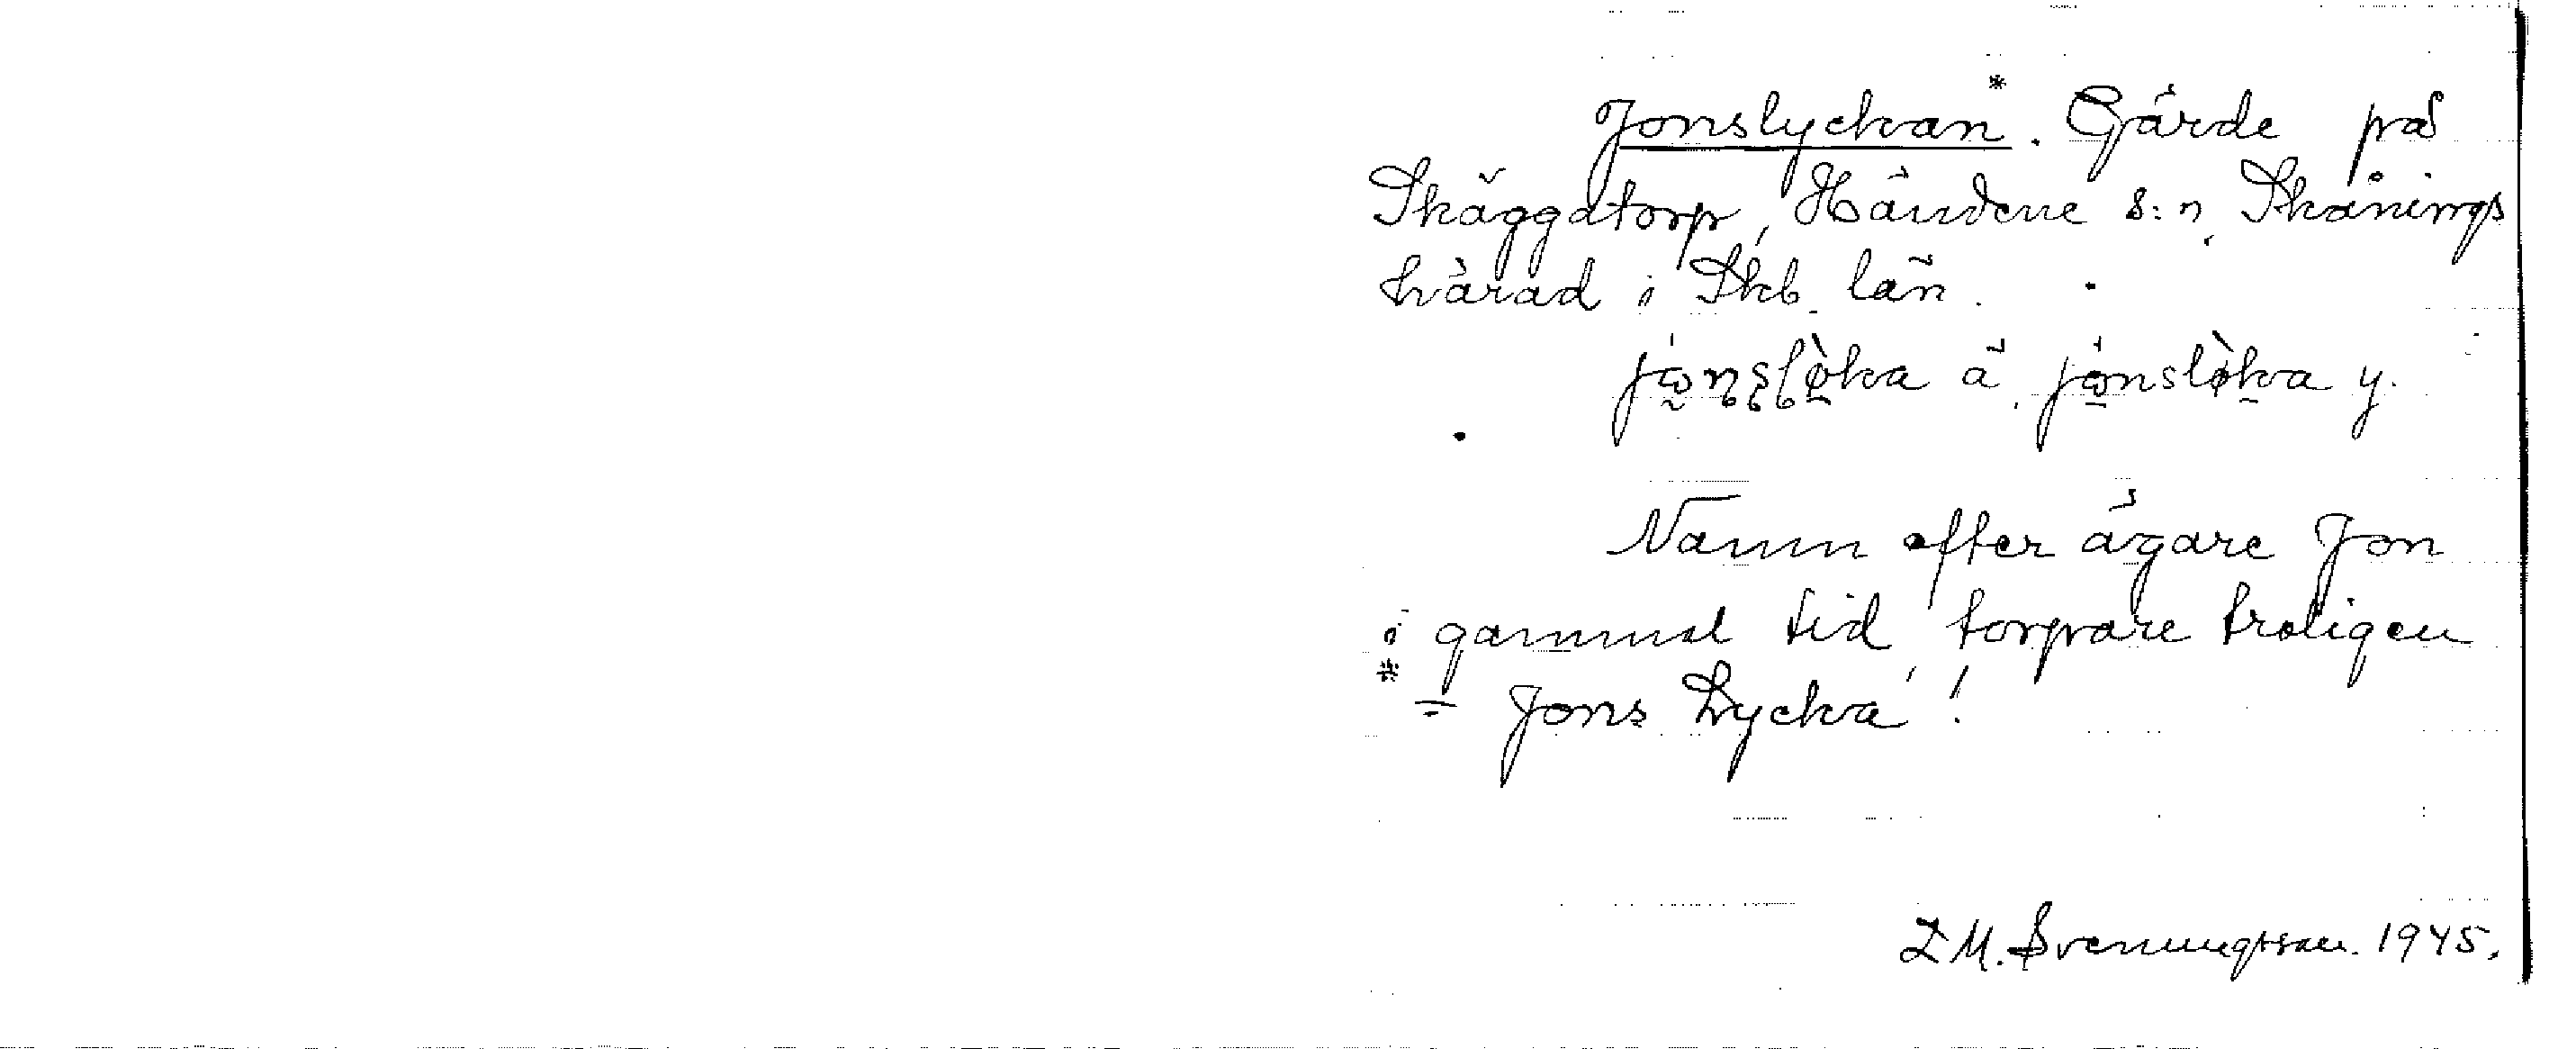 Jonslyckan*. Gärde på
Skäggatorp, Händene s:n, Skånings
härad i Skb. län.
Namn efter ägare Jon
i gammal tid, torpare troligen
* = Jons Lycka!
L M. Svenungsson. 1945.